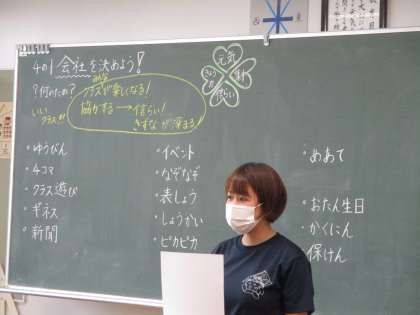 西 東
4の1 会社を決めよう！
？何のため？
いいクラス!!
みんな
クラスが楽しくなる！
協力する → 信らい！
きずなが深まる！
元気
きずな
信らい
・ゆうびん
・4コマ
・クラス遊び
・ギネス
・新聞
・イベント
・なぞなぞ
・表しょう
・しょうかい
・ピカピカ
・めあて
・おたん生日
・かくにん
・保けん